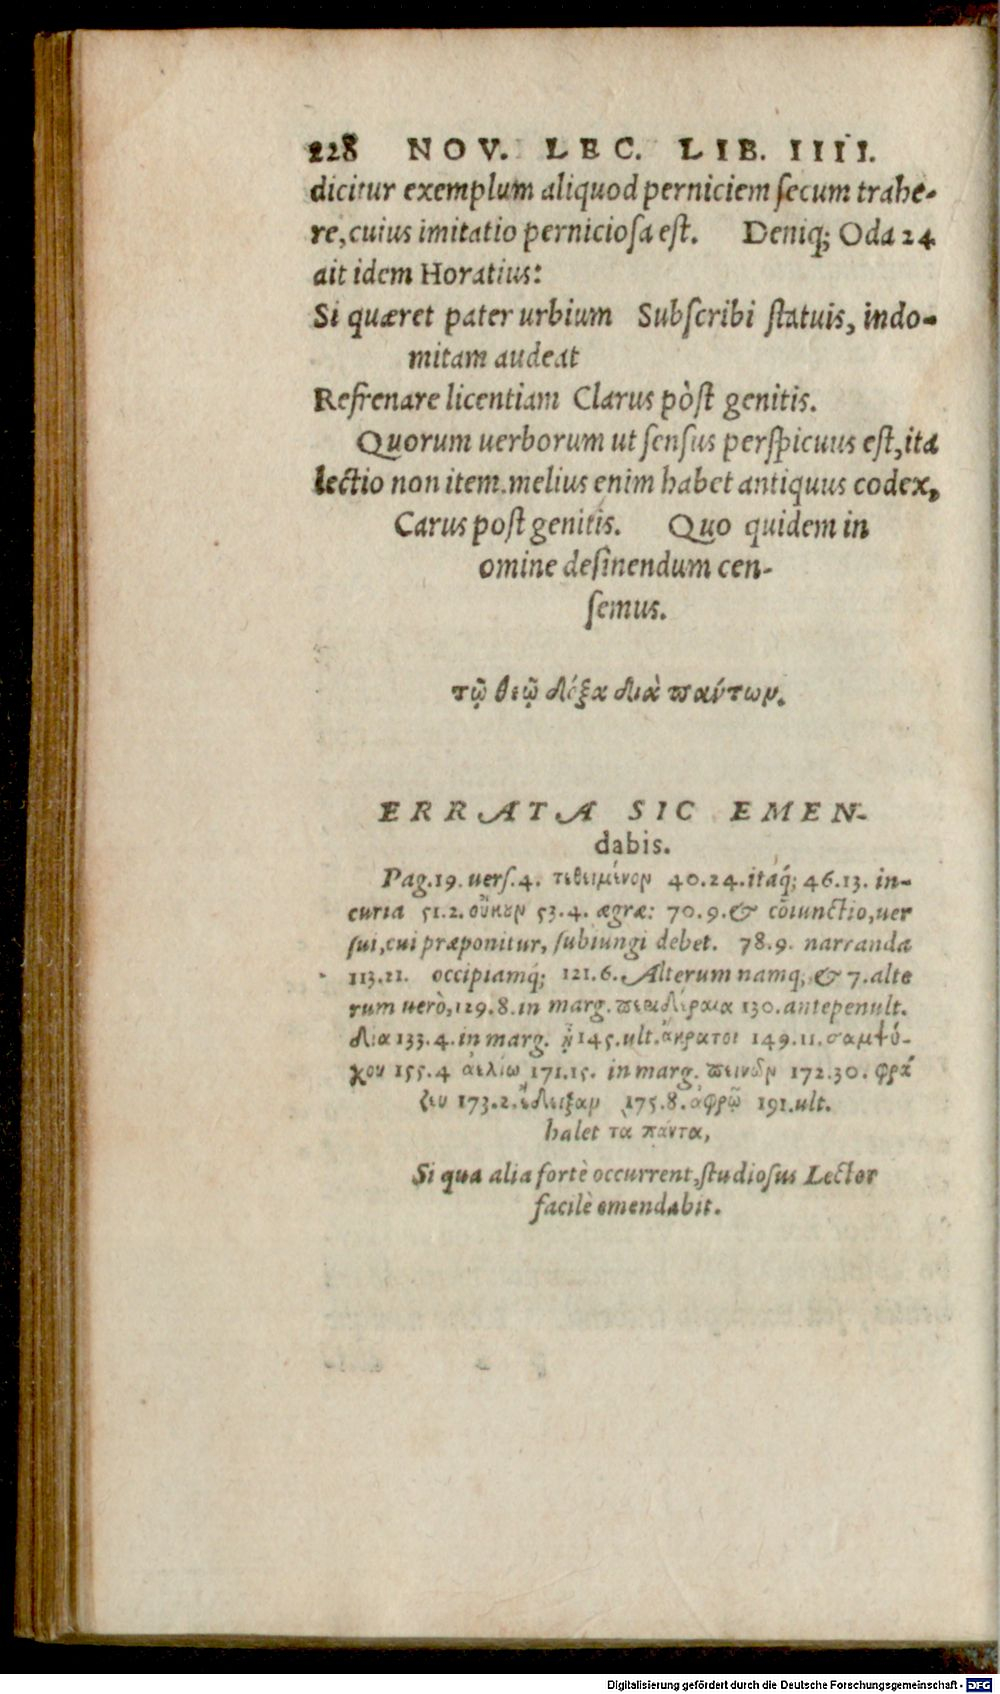 228 NOV. LEC. LIB. IIII.
dicitur exemplum aliquod perniciem ſecum trahe-
re, cuius imitatio pernicioſa eſt. Deniq; Oda 24
ait idem Horatius:
Si quæret pater urbium Subſcribi ſtatuis, indo-
mitam audeat
Refrenare licentiam Clarus pòſt genitis.
Quorum uerborum ut ſenſus perſpicuus eſt, ita
lectio non item. melius enim habet antiquus codex,
Carus poſt genitis. Quo quidem in
omine deſinendum cen-
ſemus.
τῷ θεῷ δόξα διὰ παντων.
ERRATA SIC EMEN-
dabis.
Pag. 19. uerſ. 4. τεθειμένον 40.24. itáq; 46.13. in-
curia 51.2. οὔκουν 53.4. ægræ: 70.9. & cōiunctio, uer
ſui, cui præponitur, ſubiungi debet. 78.9. narranda
113.21. occipiamq́; 121.6. Alterum namq, & 7. alte
rum uerò, 129.8. in marg. 130. antepenult.
δια 133.4. in marg. ᾖ 145. ult. ἄκρατοι 149.11. σαμψύ-
χου 155.4 ἀελίω 171.15. in marg. πεινῶν 172.30. φρά
ζευ 173.2. ἔδειξαν 175.8. ἀφρῷ 191. ult.
halet τὰ πάντα,
Si qua alia fortè occurrent, ſtudioſus Lector
facilè emendabit.
Digitalisierung gefördert durch die Deutsche Forschungsgemeinschaft - DFG